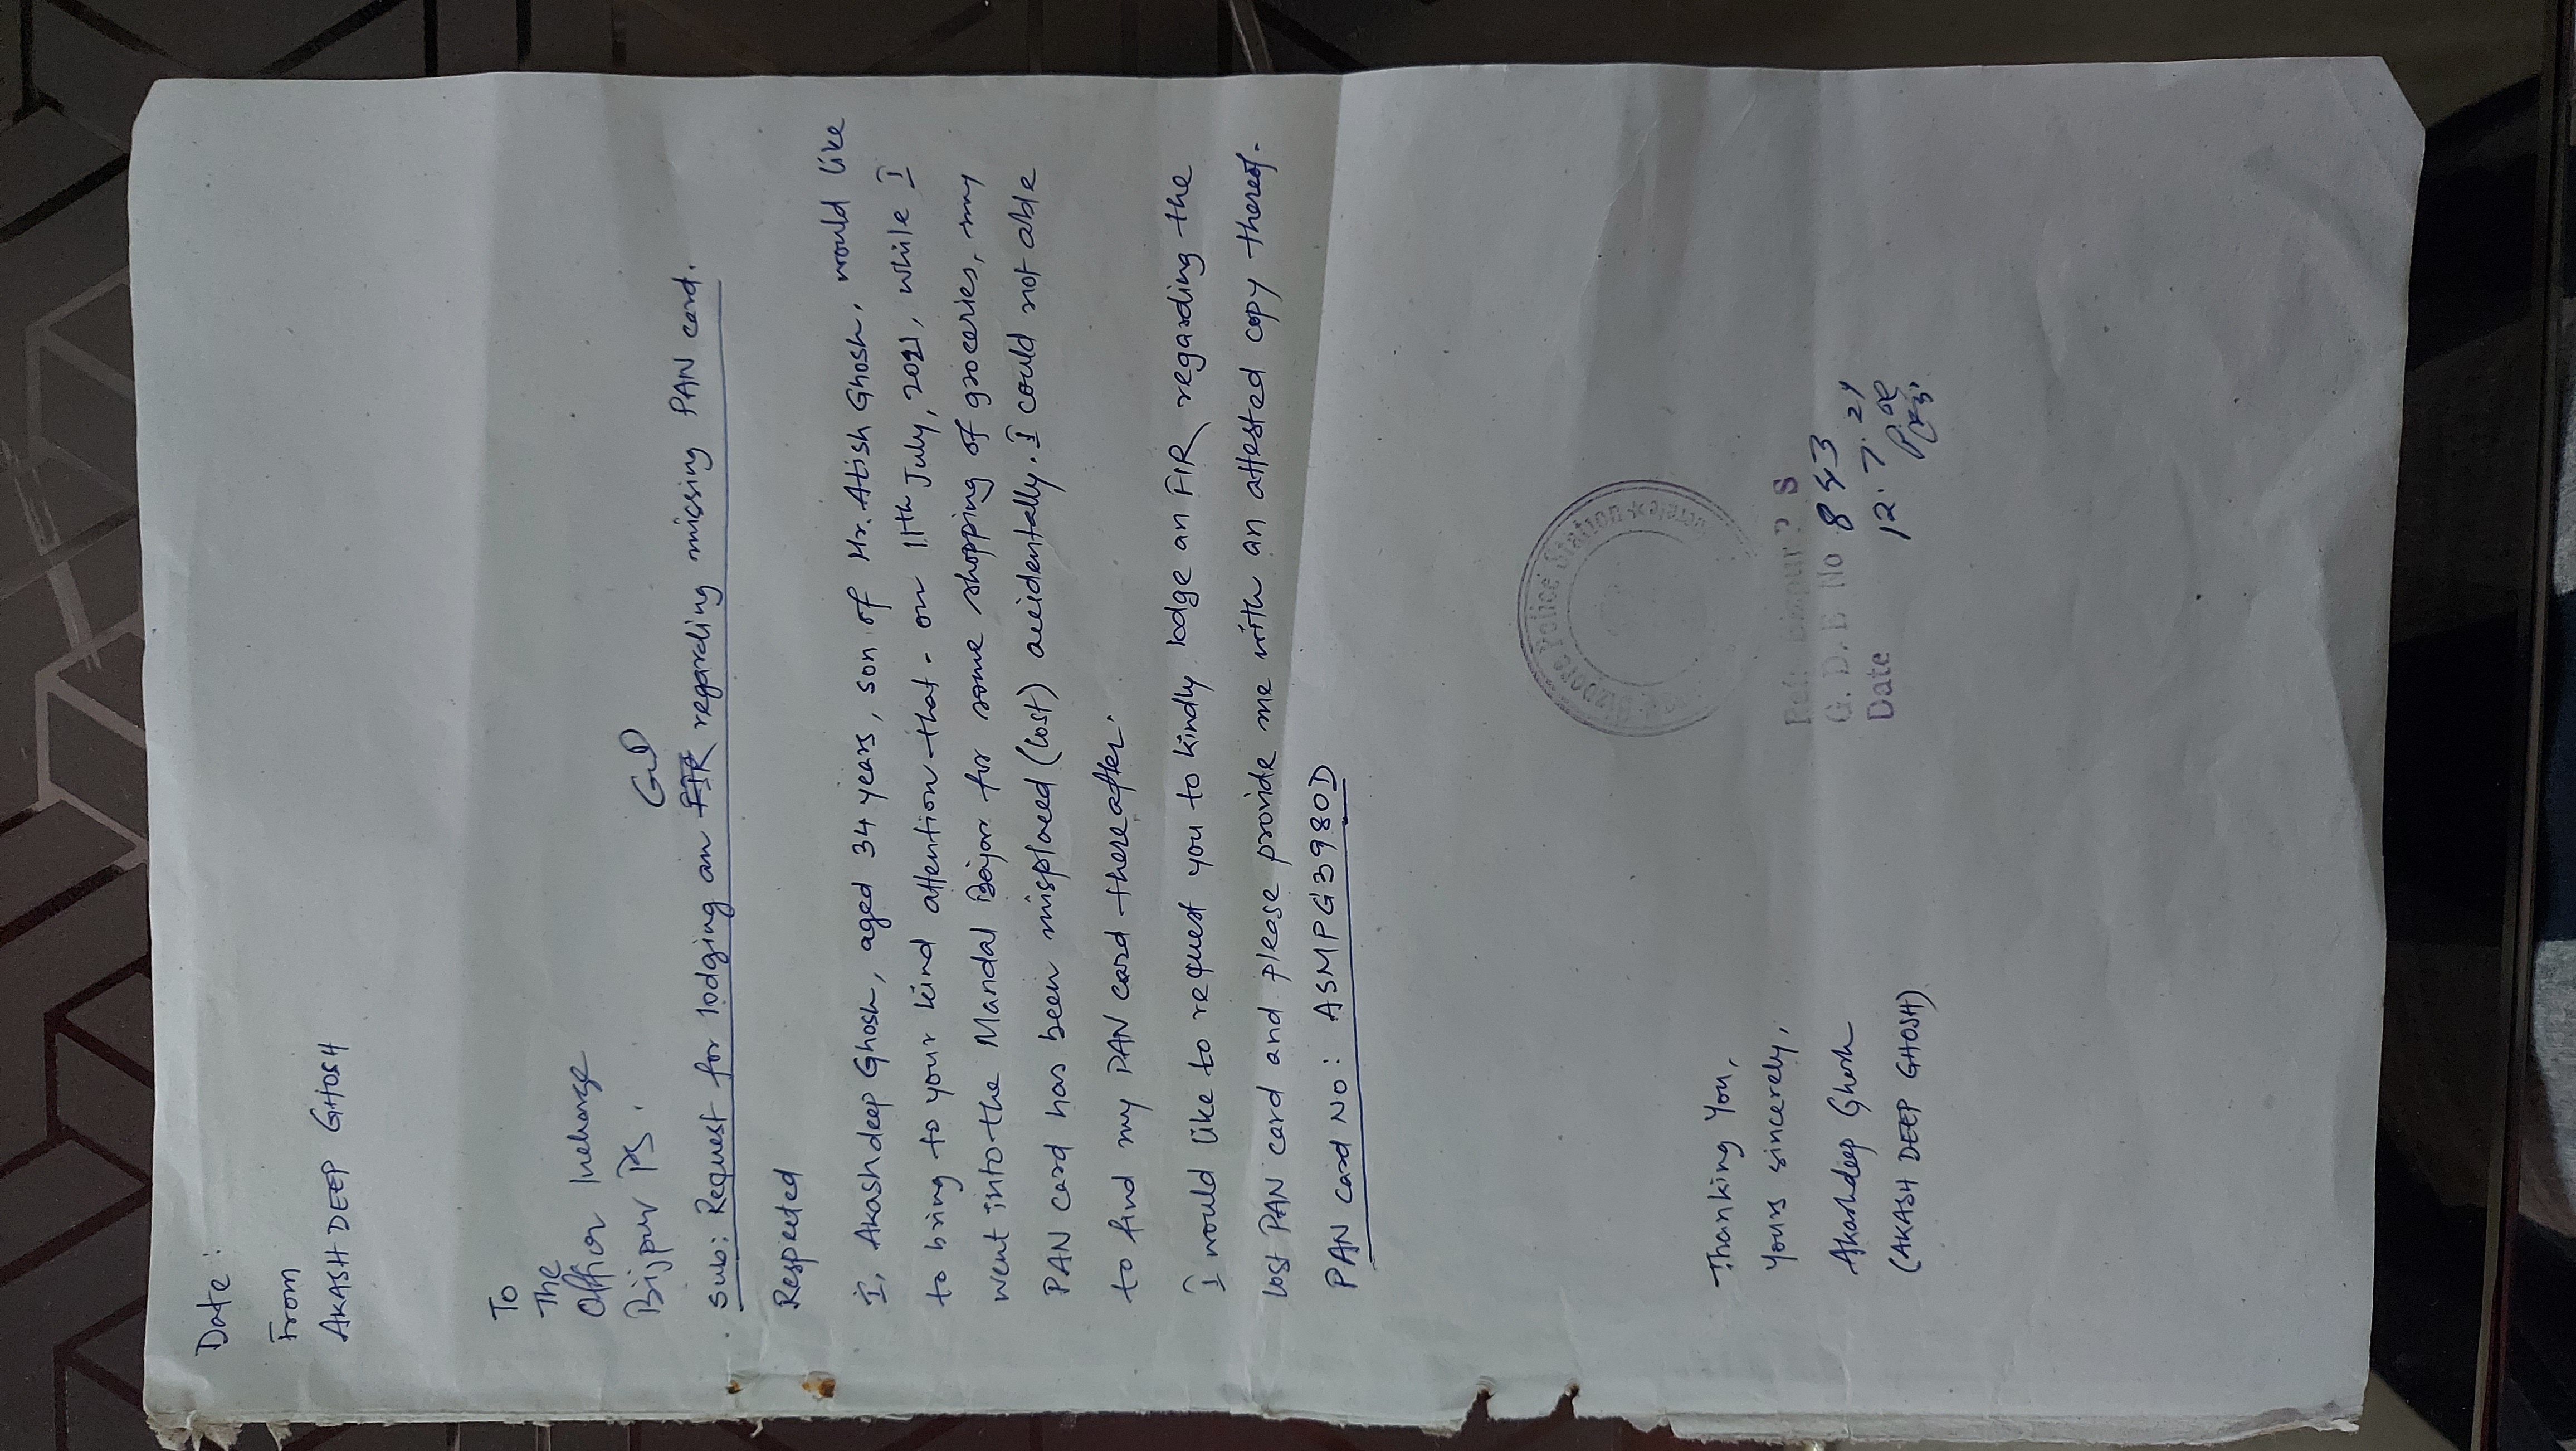 Date :
From
AKASH DEEP GHOSH
To
The
Officer Incharge
Bijpur PS.
GD
Sub: Request for lodging an FIR regarding missing PAN card.
Respected
I, Akashdeep Ghosh, aged 34 years, son of Mr. Atish Ghosh, would like
to bring to your kind attention that - on 11th July, 2021, while I
went into the Mandal Bajar for some shopping of groceries, my
PAN card has been misplaced (lost) accidentally. I could not able
to find my PAN card thereafter.
I would like to request you to kindly lodge an FIR regarding the
lost PAN card and please provide me with an attested copy thereof.
PAN card No: ASMPG3980D
Bizpore Police Station
Thanking You,
Yours sincerely,
Akashdeep Ghosh
(AKASH DEEP GHOSH)
Ref: Bizpur P S
G. D. E No 843
Date 12.7.21